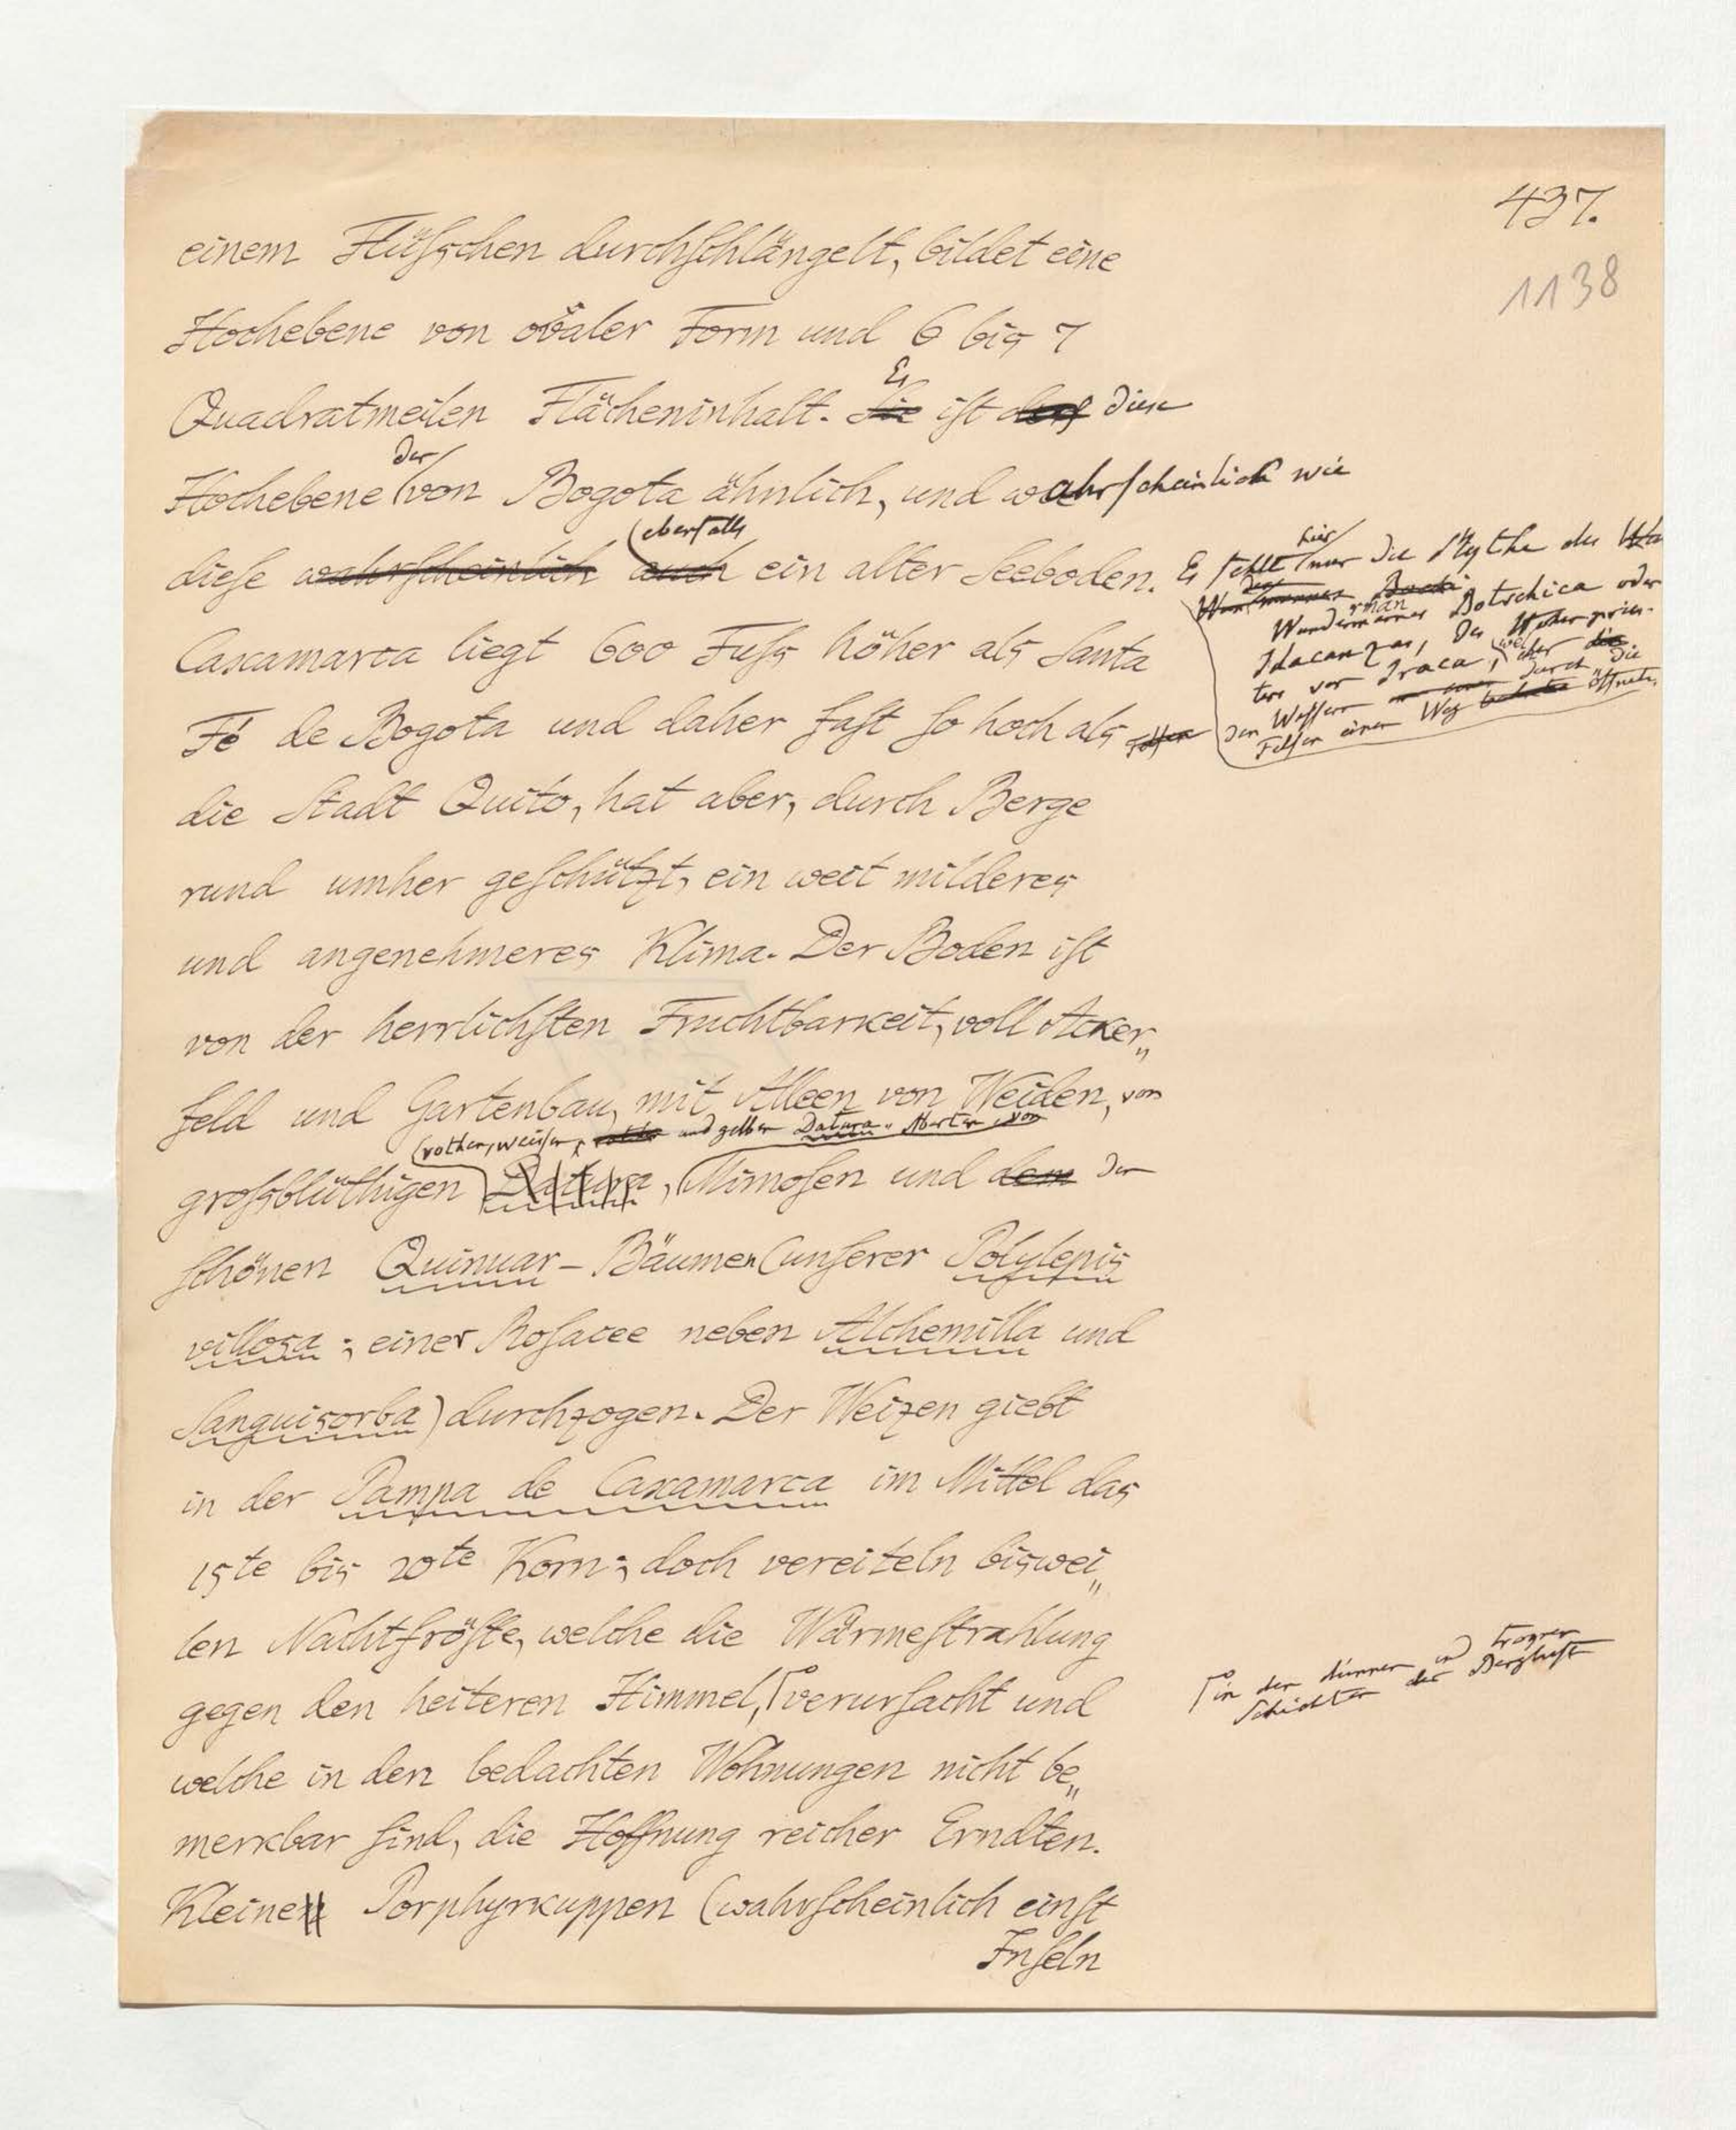 437.
1138
einem Flüſschen durchſchlängelt, bildet eine
Hochebene von ovaler Form und 6 bis 7
Es
Quadratmeilen Flächeninhalt. Sie iſt der diese
der
Hochebene von Bogota ähnlich, und wahrſcheinlich wie
ebenfalls
dieſe wahrſcheinlich auch ein alter Seeboden.
Caxamarca liegt 600 Fuſs höher als Santa
Fé de Bogota und daher faſt ſo hoch als
die Stadt Quito, hat aber, durch Berge
rund umher geſchützt, ein weit milderes
und angenehmeres Klima. Der Boden iſt
von der herrlichſten Fruchtbarkeit, voll Acker„
feld und Gartenbau, mit Alleen von Weiden, von
rother, weisser, und gelber Datura-Abarten, von
groſsblüthigen Datura, Mimoſen und dem den
ſchönen Quinuar-Bäumen (unſerer Polylepis
villosa; einer Roſacee neben Alchemilla und
Sanguisorba) durchzogen. Der Weizen giebt
in der Pampa de Caxamarca im Mittel das
15te bis 20te Korn; doch vereiteln biswei„
len Nachtfröſte, welche die Wärmeſtrahlung
gegen den heiteren Himmel, verurſacht und
welche in den bedachten Wohnungen nicht be„
merkbar ſind, die Hoffnung reicher Erndten.
Kleine Porphyrkuppen (wahrſcheinlich einſt
Inſeln
hier
Es fehlt nur die Mythe des
Wundermannes Botschica oder
Idacanzas, des Hohenpries-
ters von Iraca, welcher
den Wassern durch die
Felsen einen Weg öffnete.
in den dünnen und trognen
Schichten der Bergluft